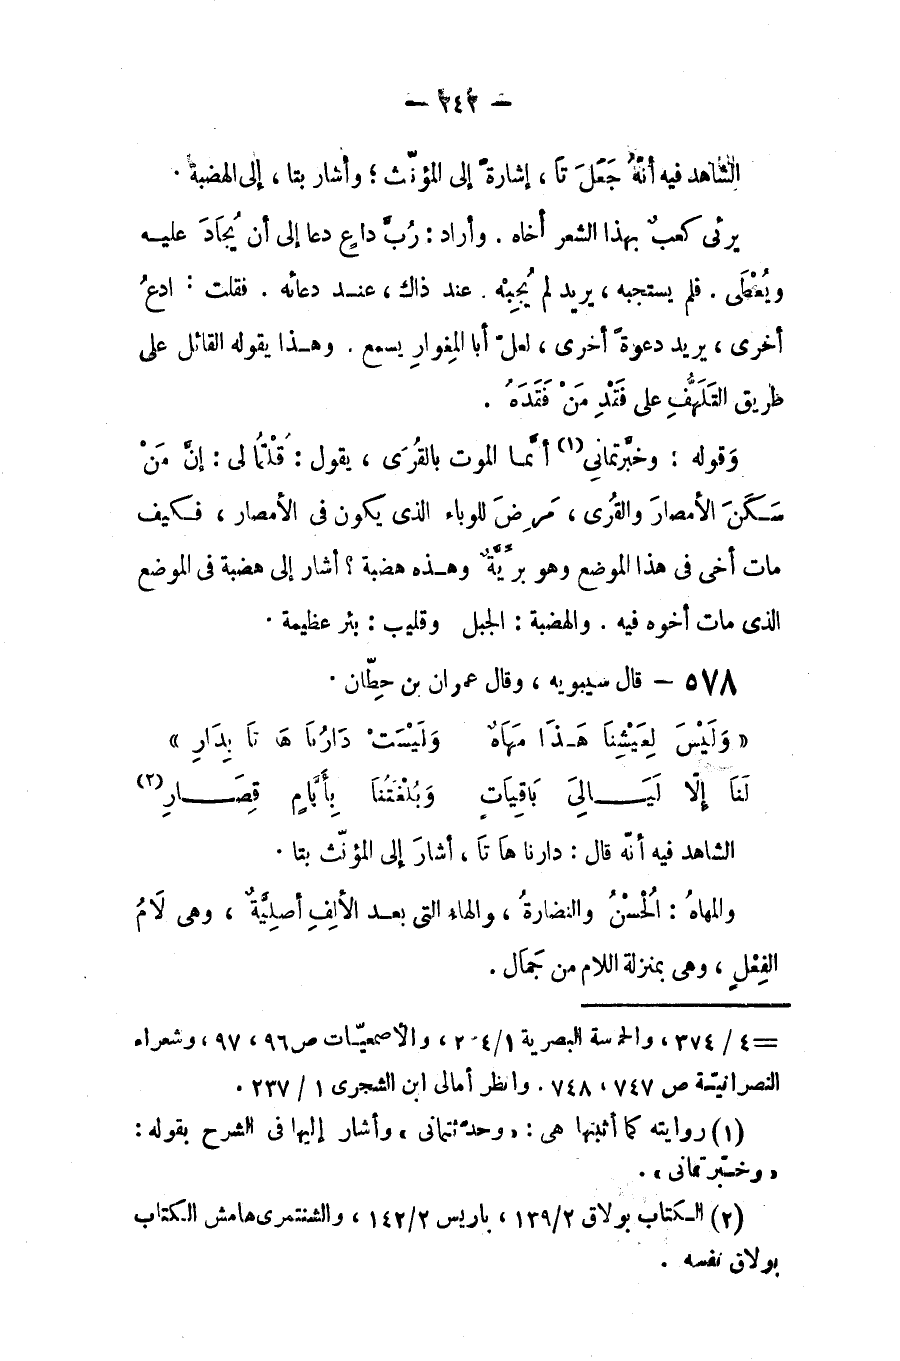 — ٢٤٢ —
الشاهد فيه أنّهُ جَعَلَ تَا ، إشارةً إلى المؤنّث ؛ وأشار بتا ، إلى الهضبة .
يرثى كعبٌ بهذا الشعر أخاه . وأراد : رُبَّ داعٍ دعا إلى أن يُجَادَ عليـه
ويُعْطَى . فلم يستجبه ، يريد لم يُجِبْه . عند ذاك ، عنـد دعائه . فقلت : ادعُ
أخرى ، يريد دعوةً أخرى ، لعلّ أبا المِغوارِ يسمع . وهـذا يقوله القائل على
طريق التَلَهُّفِ على فَقْدِ مَنْ فَقَدَهُ .
وَقوله : وخبَّرتمانِي(١) أنَّمـا الموت بالقُرَى ، يقول : قُلْتُما لى : إنَّ مَنْ
سَـكَنَ الأمصارَ والقُرى ، مَرِضَ للوباء الذى يكون فى الأمصار ، فـكيف
مات أخى فى هذا الموضع وهو برِّيَّةٌ وهـذه هضبة ؟ أشار إلى هضبة فى الموضع
الذى مات أخوه فيه . والهضبة : الجبل وقليب : بئر عظيمة .
٥٧٨ — قال سيبويه ، وقال عمران بن حطّان .
« وَلَيْسَ لِعَيْشِنَا هَـذَا مَهَاهٌ وَلَيْسَتْ دَارُنَا هَا تَا بِدَارِ »
لَنَا إِلّا لَيَـــالِىَ بَاقِيَاتٍ وَبُلْغَتُنَا بِأَيَّامٍ قِصَـــارِ(٢)
الشاهد فيه أنّه قال : دارنا هَا تَا ، أشارَ إلى المؤنّث بتا .
والمهاهُ : اُلحُسْنُ والنضارةُ ، والهاء التى بعـد الألفِ أصليَّةٌ ، وهى لَامُ
الفِعْلِ ، وهى بمنزلة اللام من جَمَال .
= ٤ / ٣٧٤ ، والحماسة البصرية ٢٠٤/١ ، والأصمعيّات ص ٩٦ ، ٩٧ ، وشعراء
النصرانيّة ص ٧٤٧ ، ٧٤٨ . وانظر أمالى ابن الشجرى ١ / ٢٣٧ .
(١) روايته كما أثبتها هى : « وحدّثتمانى » وأشار إليها فى الشرح بقوله :
« وخبّرتمانى » .
(٢) الـكتاب بولاق ١٣٩/٢ ، باريس ١٤٢/٢ ، والشنتمرى هامش الـكتاب
بولاق نفسه .